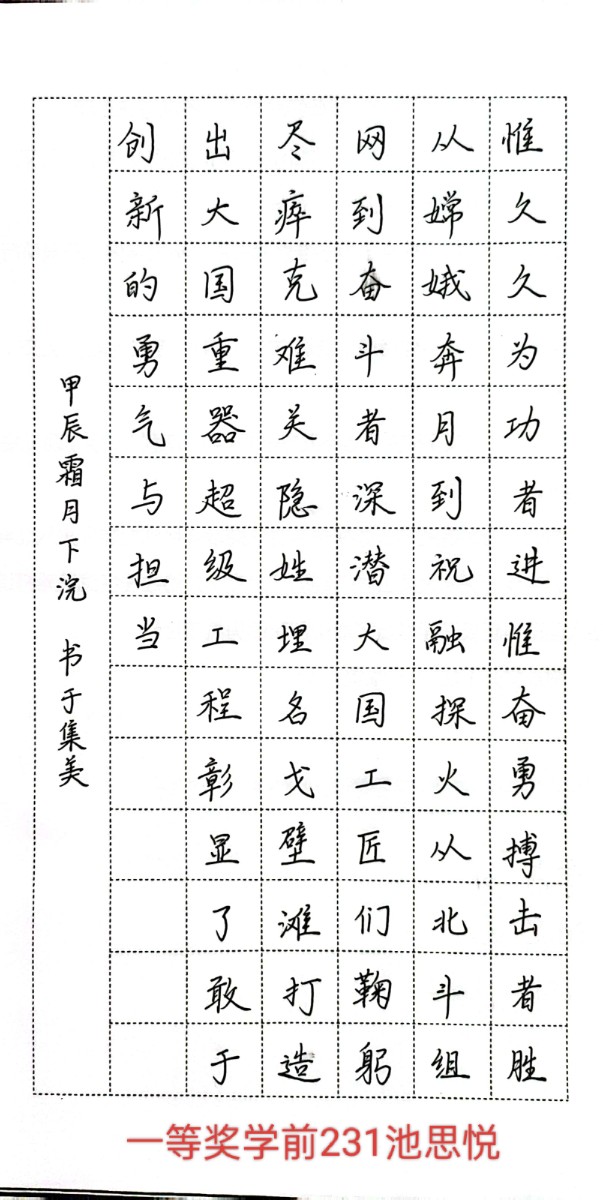 惟久久为功者进惟奋勇搏击者胜
从嫦娥奔月到祝融探火从北斗组
网到奋斗者深潜大国工匠们鞠躬
尽瘁克难关隐姓埋名戈壁滩打造
出大国重器超级工程彰显了敢于
创新的勇气与担当
甲辰霜月下浣 书于集美
一等奖学前231池思悦